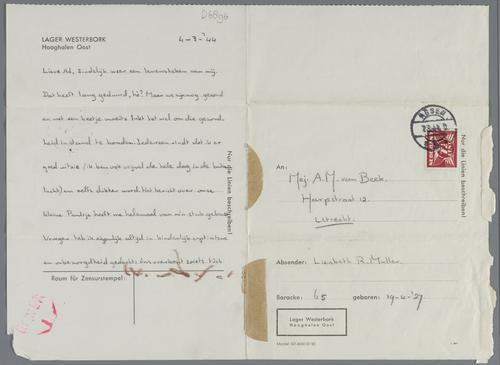 D6896
LAGER WESTERBORK
Hooghalen Oost
4-3-'44
Lieve Ad, Eindelijk weer een levensteken van mij.
Dat heeft lang geduurd, hè? Maar we zijn nog gezond
en met een beetje moeite lukt het wel om die gezond-
heid in stand te houden. Iedereen vindt dat ik er
goed uitzie (ik ben ook vrijwel de hele dag in de buiten-
lucht) en zelfs dikker word. Het bericht over onze
kleine Paultje heeft me helemaal van mijn stuk gebracht.
Vroeger heb ik eigenlijk altijd in kinderlijk egoïsme
en onbezorgdheid gedacht: ons overkomt zoiets toch
Raum für Zensurstempel:
Nur die Linien beschreiben!
ASSEN
NEDERLAND
7½
Nur die Linien beschreiben!
An:
Mej. A. M. van Beek.
Harpstraat 12.
Utrecht.
Absender: Liesbeth R. Muller.
Baracke: 65 geboren: 19-4-'27
Lager Westerbork
Hooghalen Oost